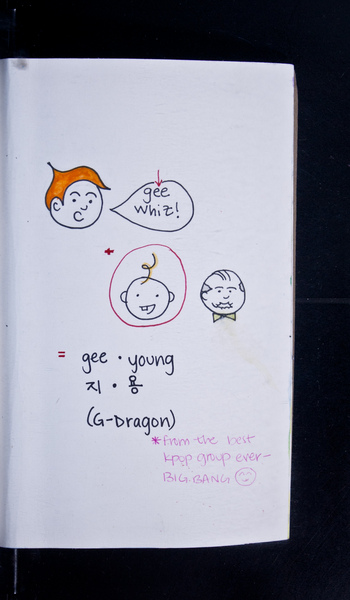 gee
whiz!
+
= gee · young
지 · 용
(G-Dragon)
*from the best
kpop group ever-
BIG.BANG